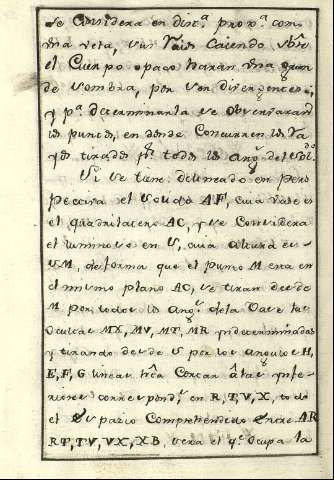 se considera en dist.ª pror.ª com
vna vela, sus rayos caiendo sobre
el Cuerpo opaco haran vna gran
de sombra, por ser divergentes;
y p.ª determinarla se observaran
los puntos, en donde concurren los ra
yos tirados p.r todos los ang.s del sol.do
Si se tiene delineado en pers
pectiva el solido AF, cuia vase es
el quadrilatero AC, y se considera
el luminoso en S, cuia altura es
SM, de forma que el punto M esta en
el mismo plano AC, se tiran desde
M por todos los ang.s de la vase las
ocultas MX, MV, MT, MR yndeterminadas
y tirando desde S por los angulos H,
E, F, G lineas h.ta cortar á las ynfe
riores correspond.s en R, T, V, X, todo
el espacio comprehendido entre AR
RT, TV, VX, XB, sera el q.e ocupa la